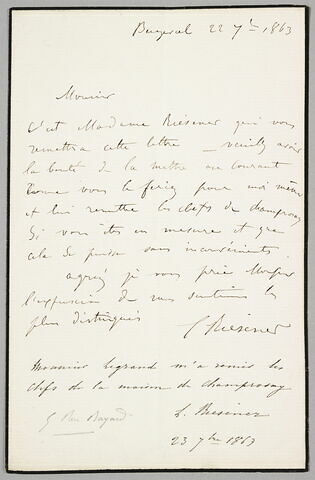 Buzeval 22 7bre 1863
Monsieur
C'est Madame Riésener qui vous
remettra cette lettre – veuillez avoir
la bonté de la mettre au courant
comme vous le feriez pour moi même
et lui remettre les clefs de champrosay
Si vous êtes en mesure et que
cela se puisse sans inconvénients.
agréez je vous prie Monsieur
l'expression de mes sentiments les
plus distingués
L Riesener
Monsieur legrand m'a remis les
clefs de la maison de champrosay
L. Riesener
23 7bre 1863
5 Rue Bayard